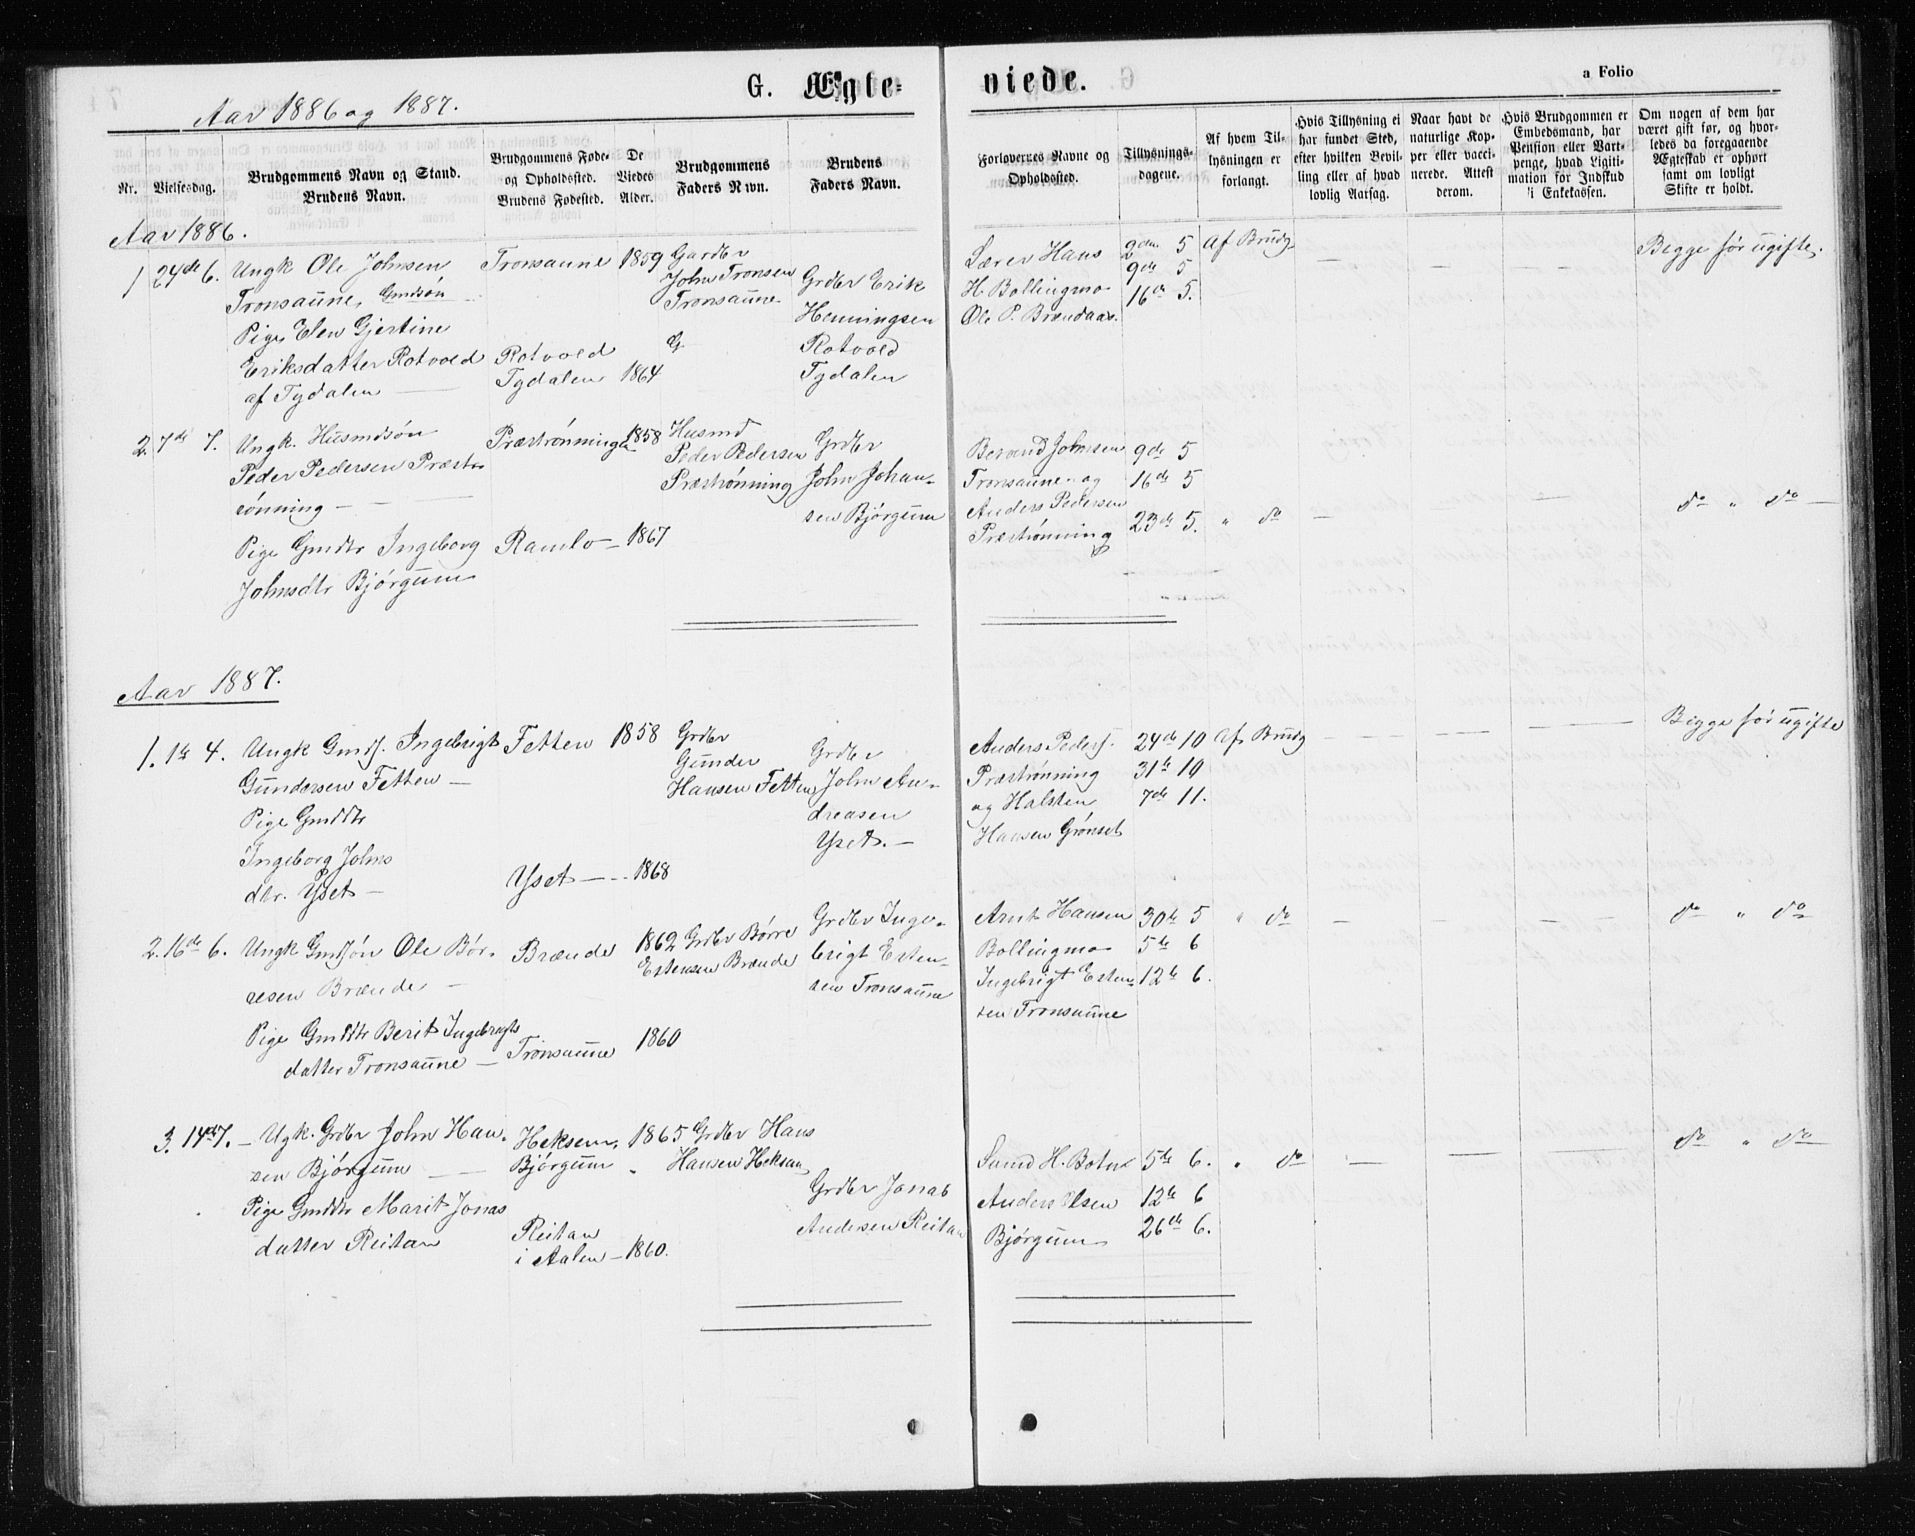 G. Ægte-
viede.
a Folio
Aar 1886 og 1887.
Nr.
Vielsesdag.
Brudgommens Navn og Stand.
Brudens Navn.
Brudgommens Føde-
og Opholdssted.
Brudens Fødested.
De
Viedes
Alder.
Brudgommens
Faders Navn.
Brudens
Faders Navn.
Forlovernes Navne og
Opholdssted.
Tillysnings-
dagene.
Af hvem Til-
lysningen er
forlangt.
Hvis Tillysning ei
har fundet Sted,
efter hvilken Bevil-
ling eller af hvad
lovlig Aarsag.
Naar havt de
naturlige Kop-
per eller vacci-
nerede. Attest
derom.
Hvis Brudgommen er
Embedsmand, har
Pension eller Vart-
penge, hvad Ligiti-
mation for Indskud
i Enkekassen.
Om nogen af dem har
været gift før, og hvor-
ledes da foregaaende
Ægteskab er ophørt
samt om lovligt
Skifte er holdt.
Aar 1886.
1 24de 6.
Ungk Ole Johnsen
Tronsaune, Gmdsön
Pige Elen Gjertine
Eriksdatter Rotvold
af Tydalen
Tronsaune 1859
Rotvold
Tydalen 1864
Gardbr
John Tronsen
Tronsaune
G
Grdbr Erik
Henningsen
Rotvold
Tydalen
Lærer Hans
H Bollingmo
Ole P. Brændaas.
2den 5
9de 5
16de 5.
Af Brudg
Begge før ugifte.
2. 7de 7.
Ungk. Husmdsön
Peder Pedersen Præst-
rönning —
Pige Gmdtr Ingeborg
Johnsdtr Bjórgum
Præströnningen 1858
Ramlo — 1867
Husmd
Peder Pedersen
Præströnning
Grdbr
John Johan-
sen Bjórgum
Berand Johnsen
Tronsaune og
Anders Pedersen
Præströnning
9de 5
16de 5
23de 5.
" do —
do " do —
Aar 1887.
1. 1te 4.
Ungk Gmdf. Ingebrigt
Gundersen Fetten —
Pige Gmddtr
Ingeborg Johns
dtr. Yset —
Fetten 1858
Yset — 1868
Grdbr
Gunder
Hansen Fetten
Grdbr
John An-
dreasen
Yset. —
Anders Peders.
Præströnning
og Halsten
Hansen Grönset
24de 10
31te 10
7de 11.
Af Brudg
Begge før ugifte
2. 16de 6.
Ungk Gmdsön Ole Bör-
resen Brænde —
Pige Gmddtr Berit Ingebrigts
datter Tronsaune —
Brænde 1862
Tronsaune 1860
Grdbr Börre
Estensen Brænde
Grdbr Inge-
brigt Esten-
sen Tronsaune
Arnt Hansen
Bollingmo
Ingebrigt Esten-
sen Tronsaune
30te 5
5te 6
12te 6.
" do —
do " do
3. 14de 7. —
Ugk. Grdbr John Han-
sen Bjórgum —
Pige Gmddtr Marit Jonas
datter Reitan
Heksem, 1865
Bjórgum "
Reitan
i Aalen — 1860.
Grdbr Hans
Hansen Heksem
Grdbr Jonas
Andersen Reitan
H. Botn
Anders Olsen
Bjórgum
5te 6.
12te 6
26de 6.
" do —
do " do